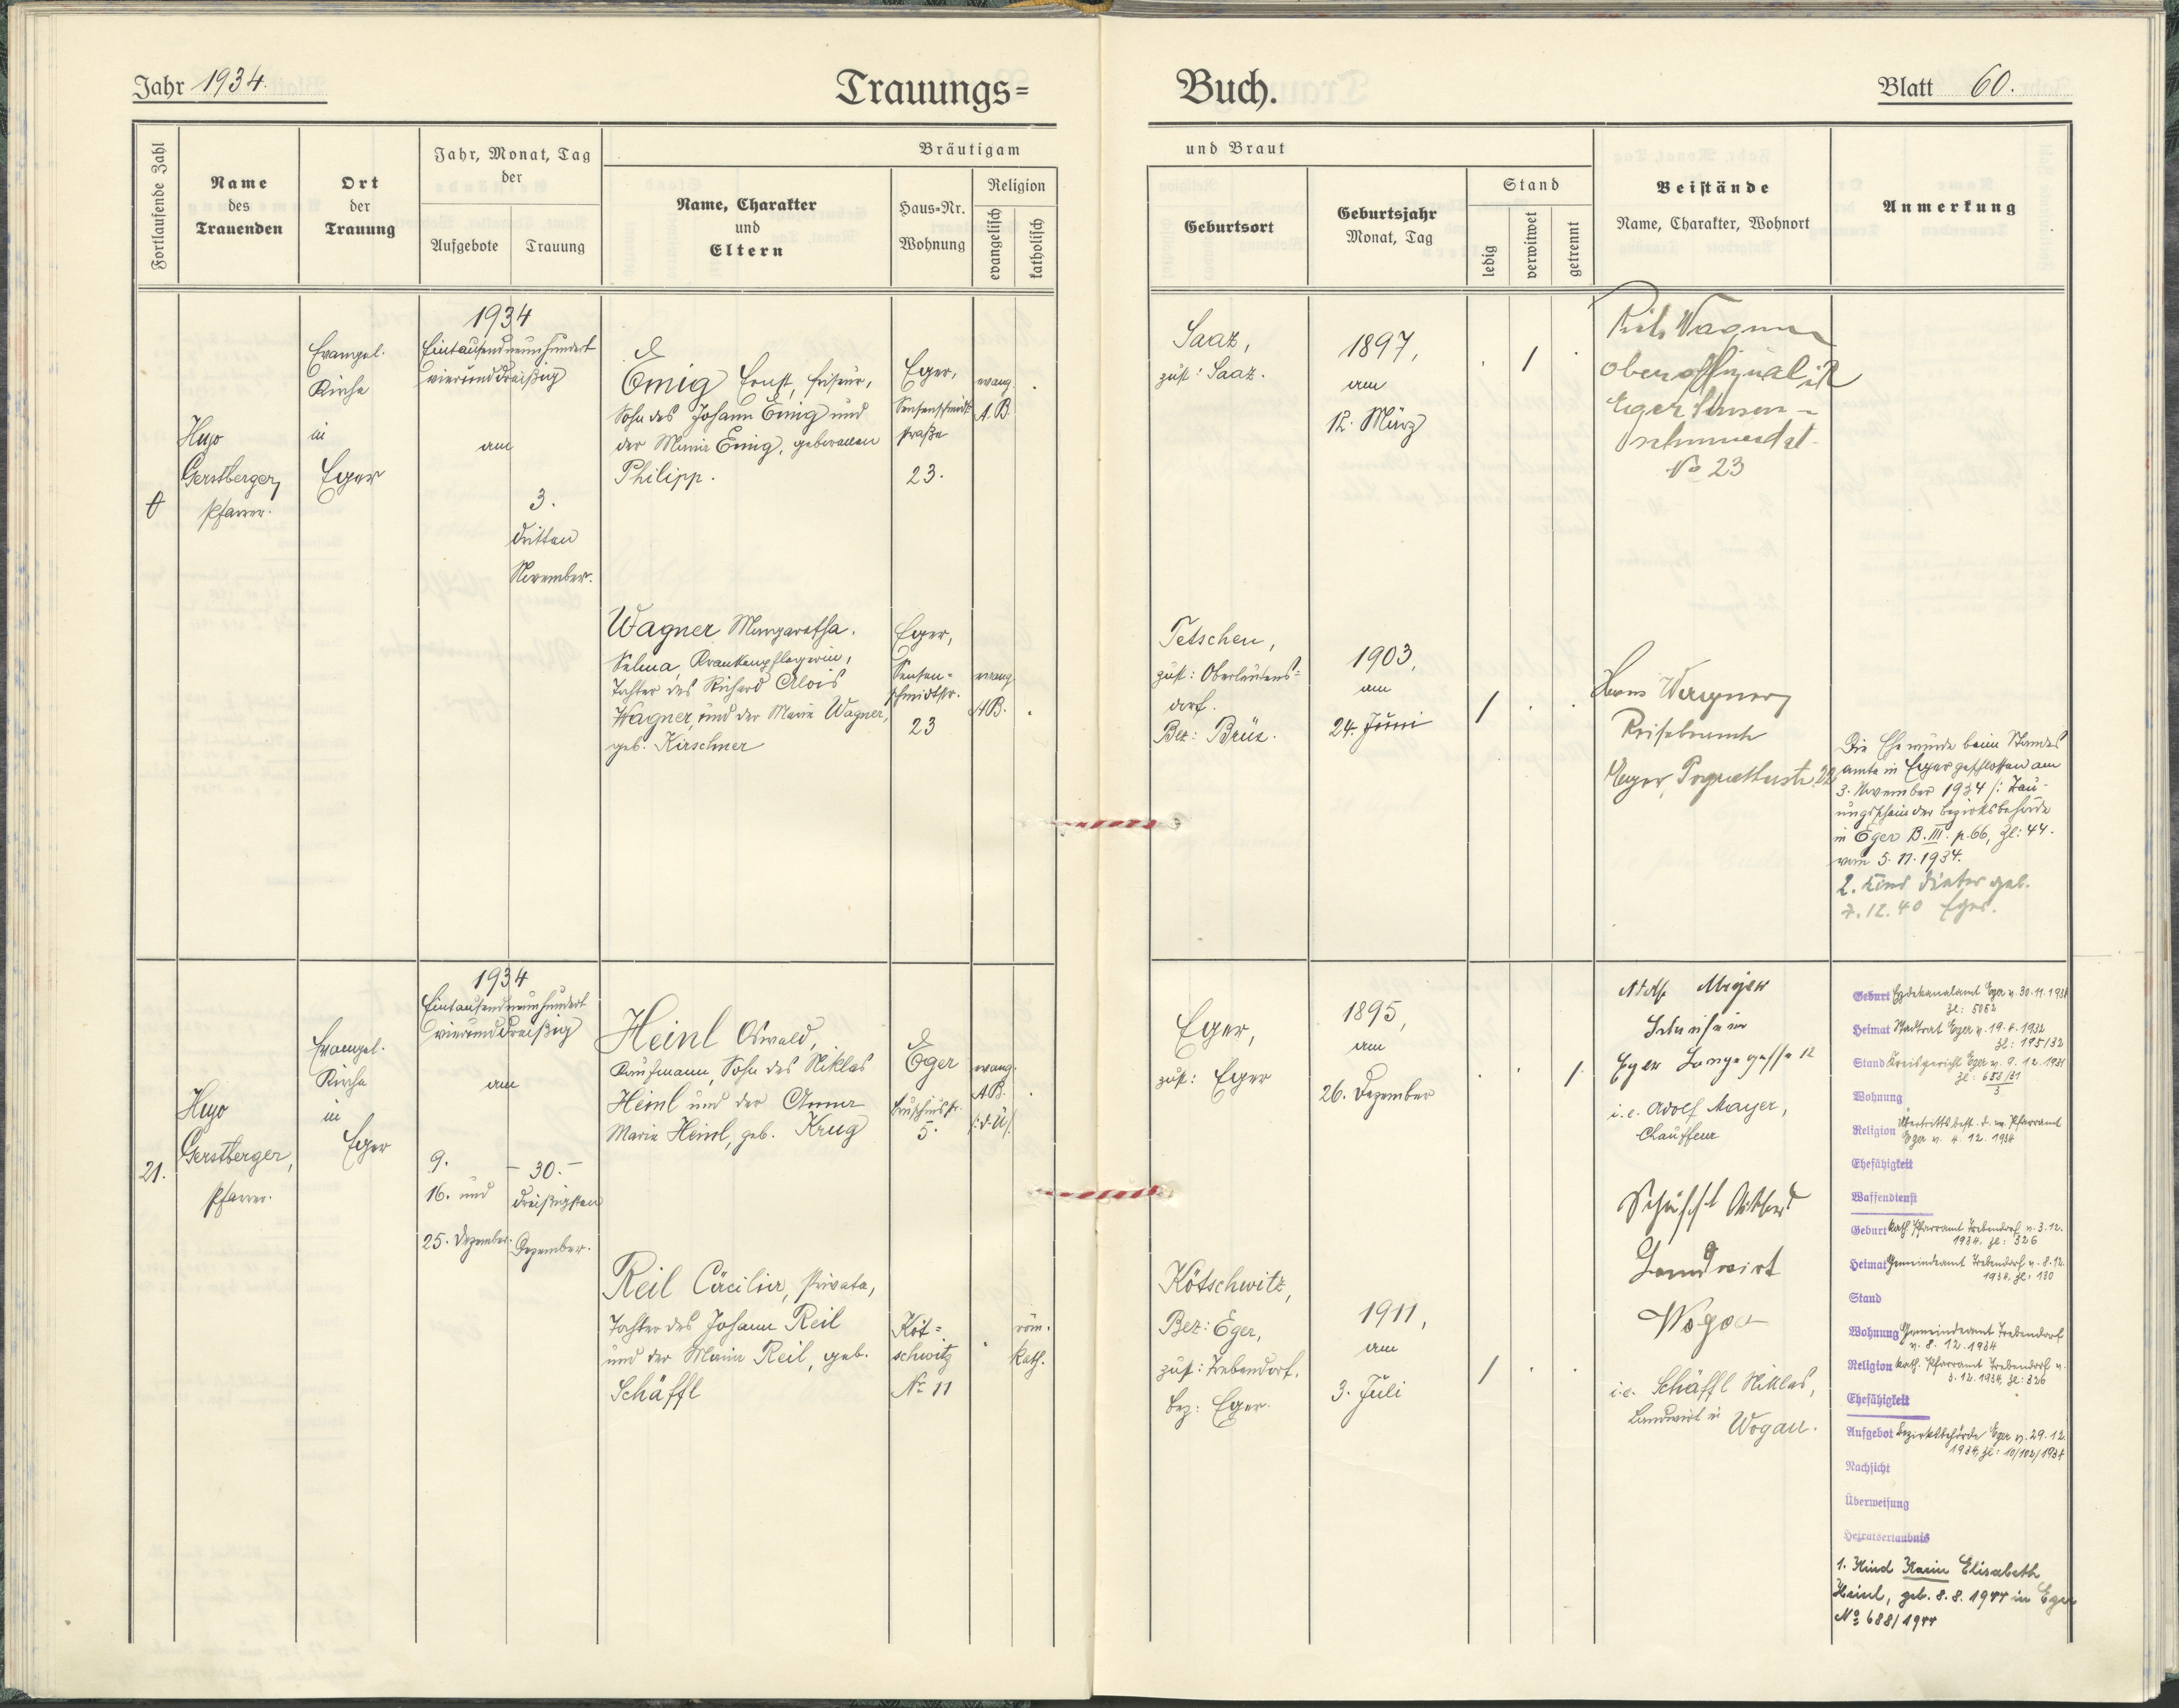 Jahr 1934.
Trauungs=
Buch.
Blatt 60.
Fortlaufende Zahl
Name
des
Trauenden
Ort
der
Trauung
Jahr, Monat, Tag
der
Aufgebote
Trauung
Bräutigam
Name, Charakter
und
Eltern
Haus=Nr.
Wohnung
Religion
evangelisch
katholisch
und Braut
Geburtsort
Geburtsjahr
Monat, Tag
Stand
ledig
verwitwet
getrennt
Beistände
Name, Charakter, Wohnort
Anmerkung
Hugo
Gerstberger,
Pfarrer.
Evangel.
Kirche
in
Eger
1934
Eintausendneunhundert
vierunddreißig
am
3.
dritten
November.
Emig Ernst, Friseur,
Sohn des Johann Emig und
der Maria Emig, geborenen
Philipp.
Eger,
Sensenschmidt
straße
23.
evang.
A.B.
Saaz,
zust: Saaz.
1897,
am
12. März
Wagner
Oberoffizial i.R.
Eger Sensen-
schmiedst.
No 23
Wagner Margaretha.
Selma, Krankenpflegerin,
Tochter des Richard Alois
Wagner, und der Maria Wagner,
geb. Kirschner
Eger,
Sensen=
schmidtstr.
23
evang.
A.B.
Tetschen,
zust: Oberleutens=
dorf.
Bez: Brüx.
1903,
am
24. Juni
Hans Wagner
Eger,
22
Die Ehe wurde beim Standes
amte in Eger geschlossen am
3. November 1934 /: Trau-
ungsschein der Bezirksbehörde
in Eger B. III. p. 66, Zl: 44.
vom 5. 11. 1934.
2. Kind Dieter geb.
7. 12. 40 Eger.
21.
Hugo
Gerstberger,
Pfarrer.
Evangel.
Kirche
in
Eger
1934
Eintausendneunhundert
vierunddreißig
am
9.
16. und
25. Dezember.
- 30. -
dreißigsten
Dezember.
Heinl Oswald,
Kaufmann, Sohn des Niklas
Heinl und der Anna
Maria Heinl, geb. Krug
Eger
5.
evang.
A.B.
/:d.Ü/.
Eger,
zust: Eger
1895,
am
26. Dezember
Adolf Mayer
Eger Langegasse 12
i.e. Adolf Mayer,
Chauffeur
Geburt Erzdekanalamt Eger v. 30. 11. 1934
Zl: 5052
Heimat Stadtrat Eger v. 19. 4. 1932
Zl: 195/32
Stand Kreisgericht Eger v. 9. 12. 1931
Wohnung
Religion Übertrittsbest. d. ev. Pfarramt
Eger v. 4. 12. 1934
Ehefähigkeit
Waffendienst
Reil Cäcilia, Private,
Tochter des Johann Reil
und der Maria Reil, geb.
Schäffl
Köt=
schwitz
No 11
röm.
kath.
Kötschwitz,
Bez: Eger,
zust: Trebendorf,
Bez: Eger.
1911,
am
3. Juli
Landwirt
Wogau
i.e. Schäffl Niklas,
Landwirt in
Wogau.
Geburt kath. Pfarramt Trebendorf v. 3. 12.
1934, Zl: 326
Heimat Gemeindeamt Trebendorf v. 8. 12.
1934, Zl: 130
Stand
Wohnung Gemeindeamt Trebendorf
v. 8. 12. 1934
Religion kath. Pfarramt Trebendorf v.
3. 12. 1934, Zl: 326
Ehefähigkeit
Aufgebot Bezirksbehörde Eger v. 29. 12.
1934, Zl: 10/102/1934
Nachsicht
Überweisung
Heiratserlaubnis
1. Kind Karin Elisabeth
Heinl, geb. 8. 8. 1944 in Eger
No 688/1944